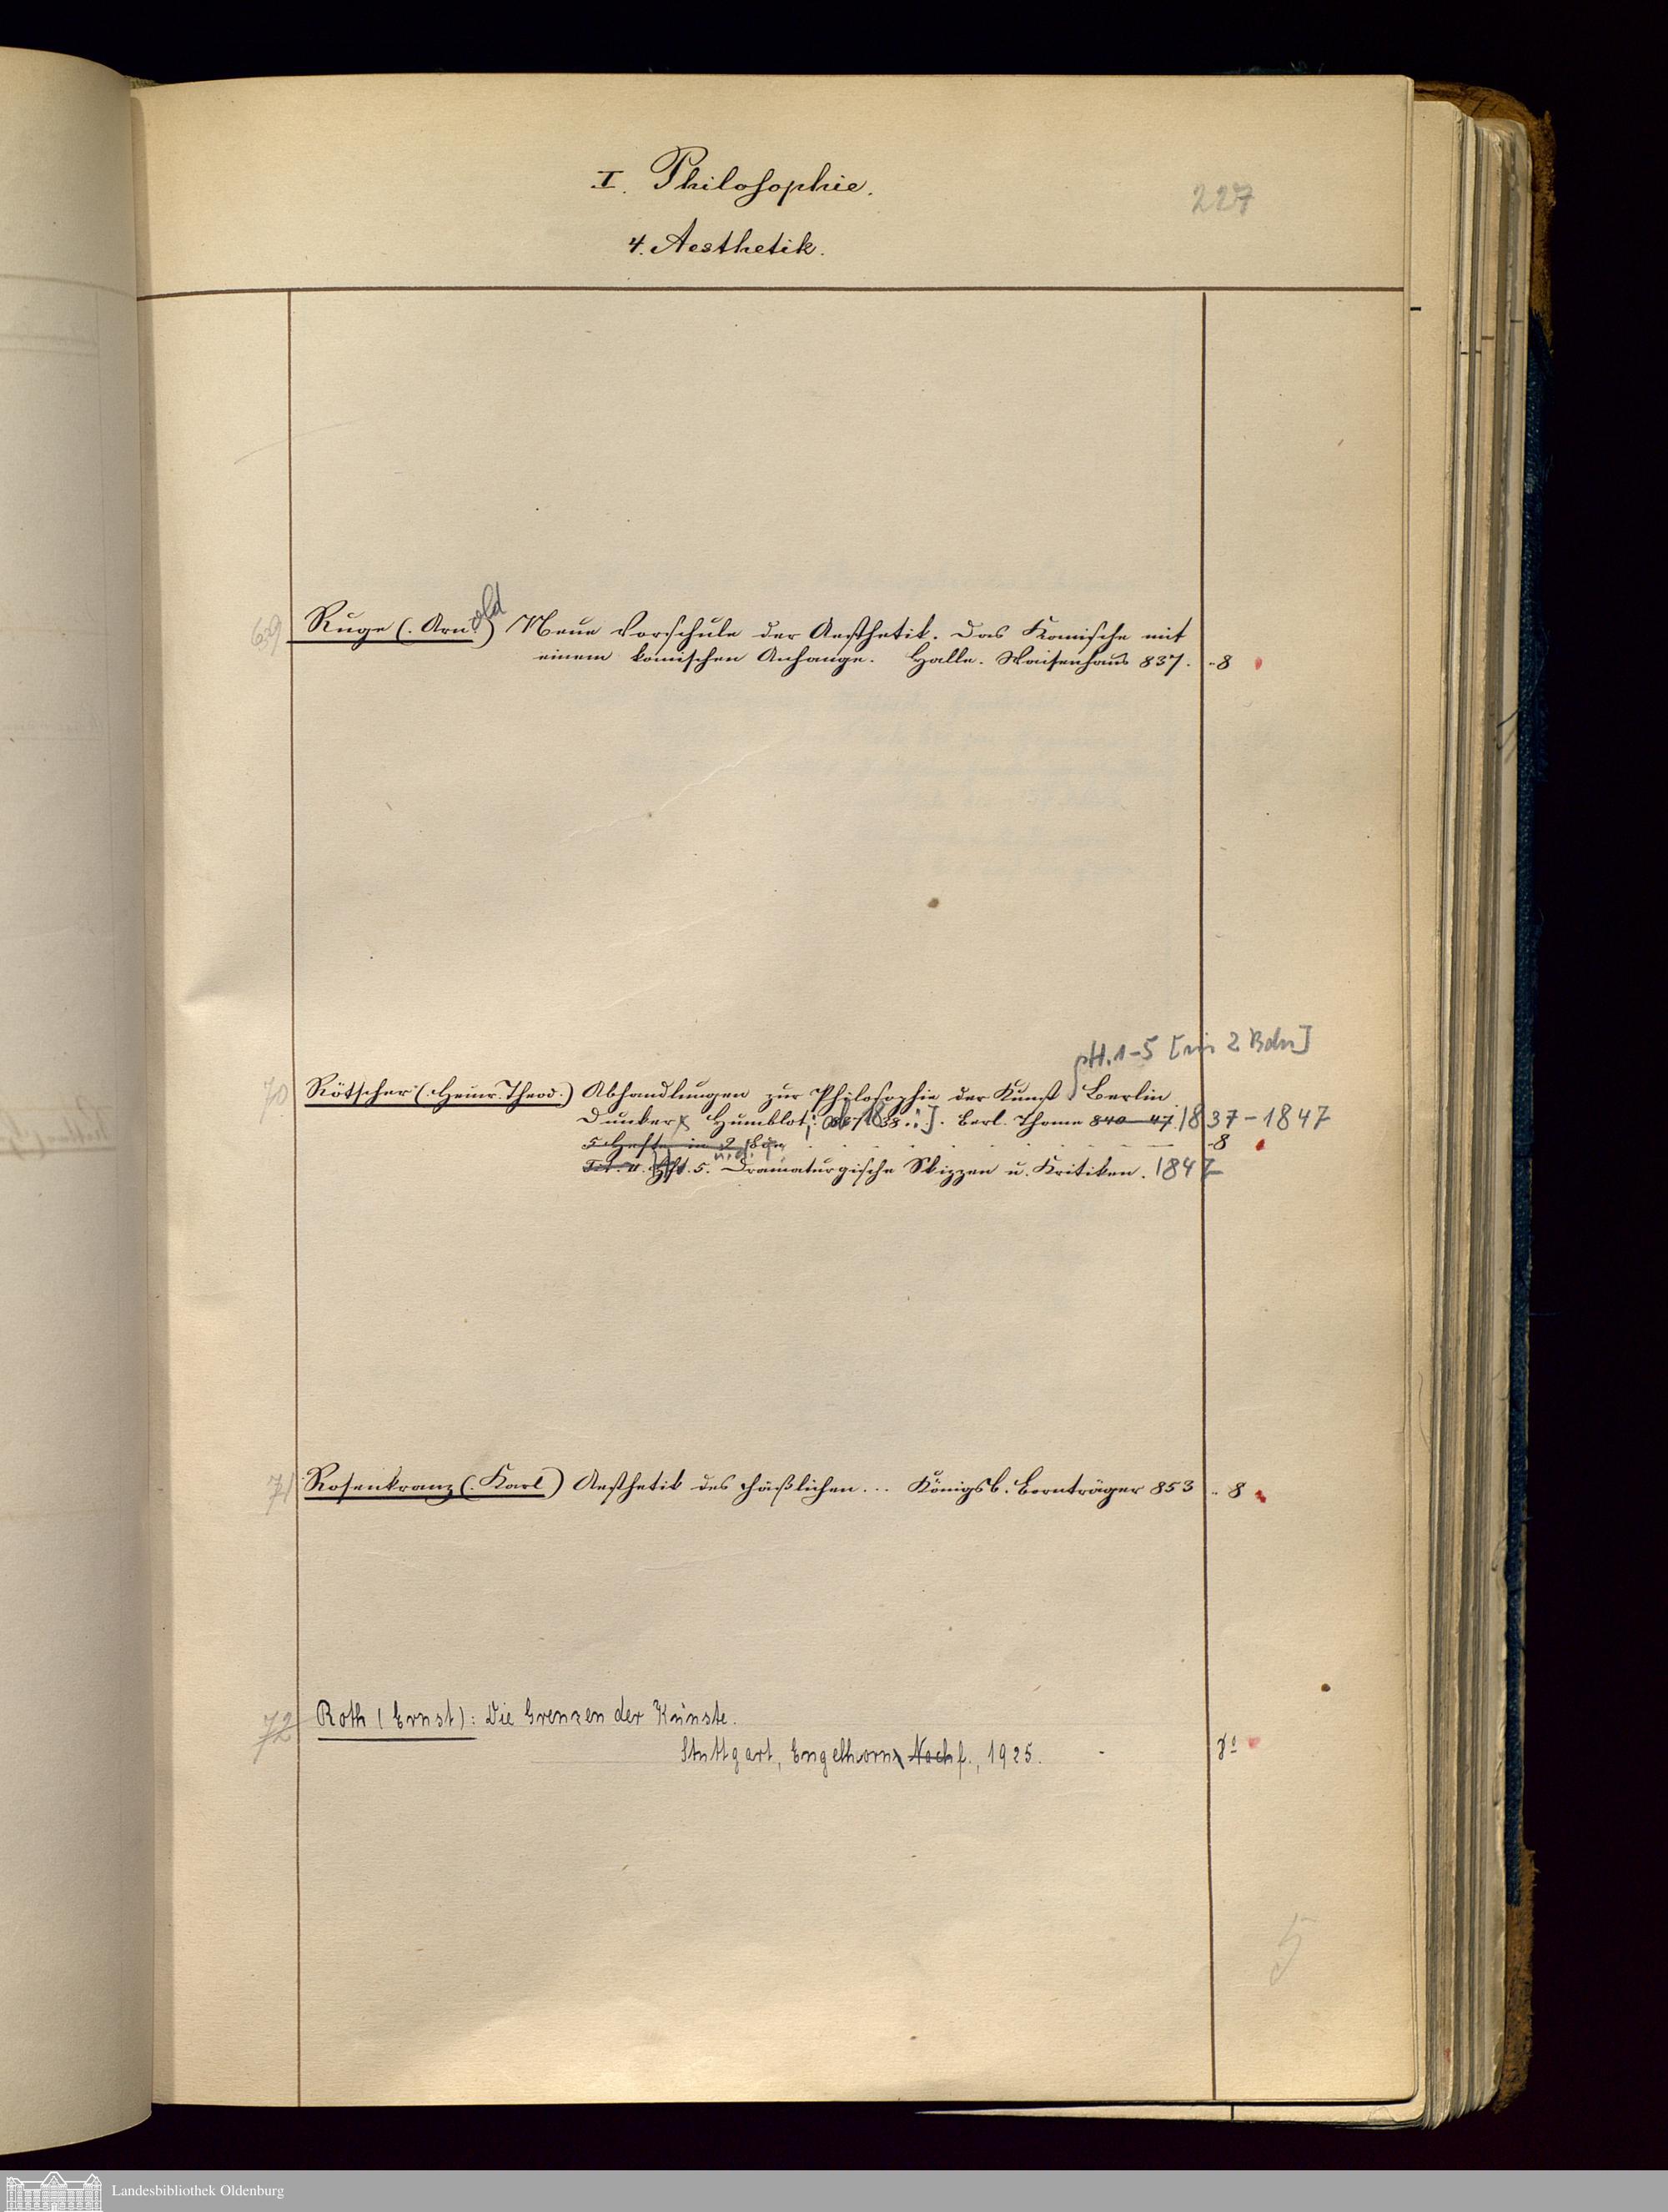 I. Philosophie.
227
4. Aesthetik.
69 Ruge (. Arnold) Neue Vorschule der Aesthetik. Das Komische mit
einem komischen Anhange. Halle. Waisenhaus 837. 8
H. 1-5 [in 2 Bdn]
70 Rötscher (. Heinr. Theod.) Abhandlungen zur Philosophie der Kunst. Berlin
Dunker Humblot; Berl. Thome 840-47. 1837-1847
5 Hefte in 2 Bdn 8
Hft. 5. Dramaturgische Skizzen u. Kritiken. 1847
71 Rosenkranz (. Karl) Aesthetik des Häßlichen... Königsb. Bornträger 853 8
72 Roth (Ernst): Die Grenzen der Künste.
Stuttgart, Engelhorns Nachf., 1925. 8°
5
Landesbibliothek Oldenburg